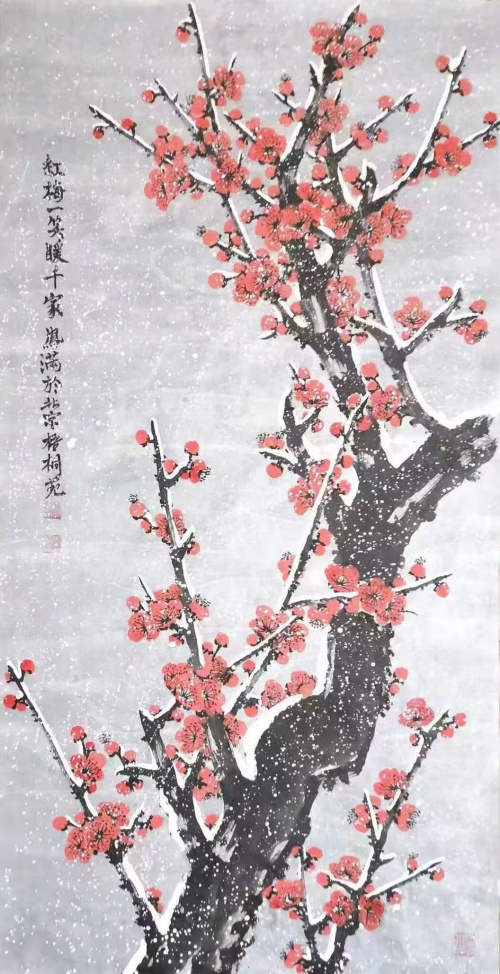 红梅一笑暖千家 凤满於北京梧桐苑